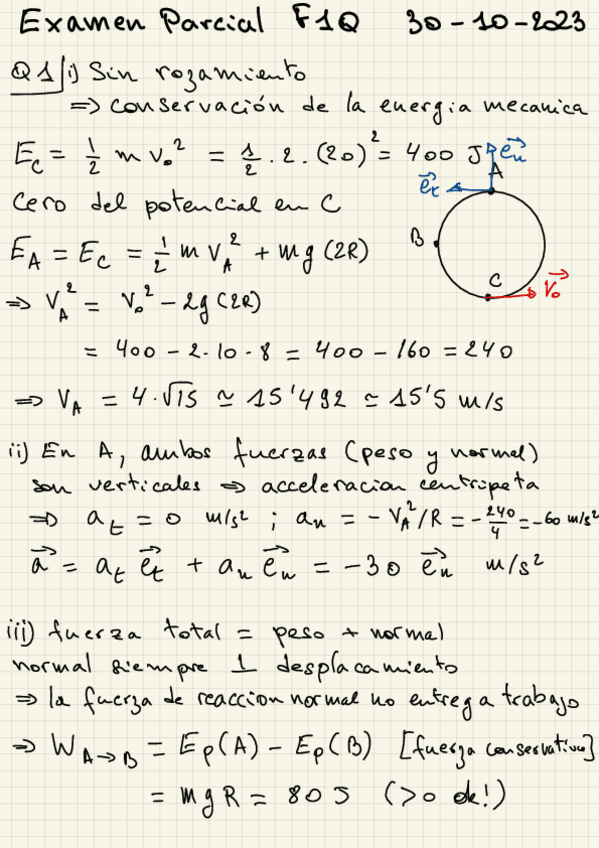 Examen Parcial F1Q 30-10-2023
Q1/i) Sin rozamiento
⇒ conservación de la energia mecanica
E_C = 1/2 m v_o² = 1/2 · 2 · (20)² = 400 J
e_n
A
e_t
Cero del potencial en C
B
E_A = E_C = 1/2 m v_A² + mg (2R)
C
V_o
⇒ V_A² = V_o² - 2g (2R)
= 400 - 2·10·8 = 400 - 160 = 240
⇒ V_A = 4·√15 ≃ 15'492 ≃ 15'5 m/s
ii) En A, ambos fuerzas (peso y normal)
son verticales ⇒ acceleracion centripeta
⇒ a_t = 0 m/s² ; a_n = - V_A²/R = - 240/4 = -60 m/s²
a = a_t e_t + a_n e_n = -30 e_n m/s²
iii) fuerza total = peso + normal
normal siempre ⊥ desplacamiento
⇒ la fuerza de reaccion normal no entrega trabajo
⇒ W_A→B = E_p(A) - E_p(B) [fuerza conservativa]
= mgR = 80 J (>0 ok!)